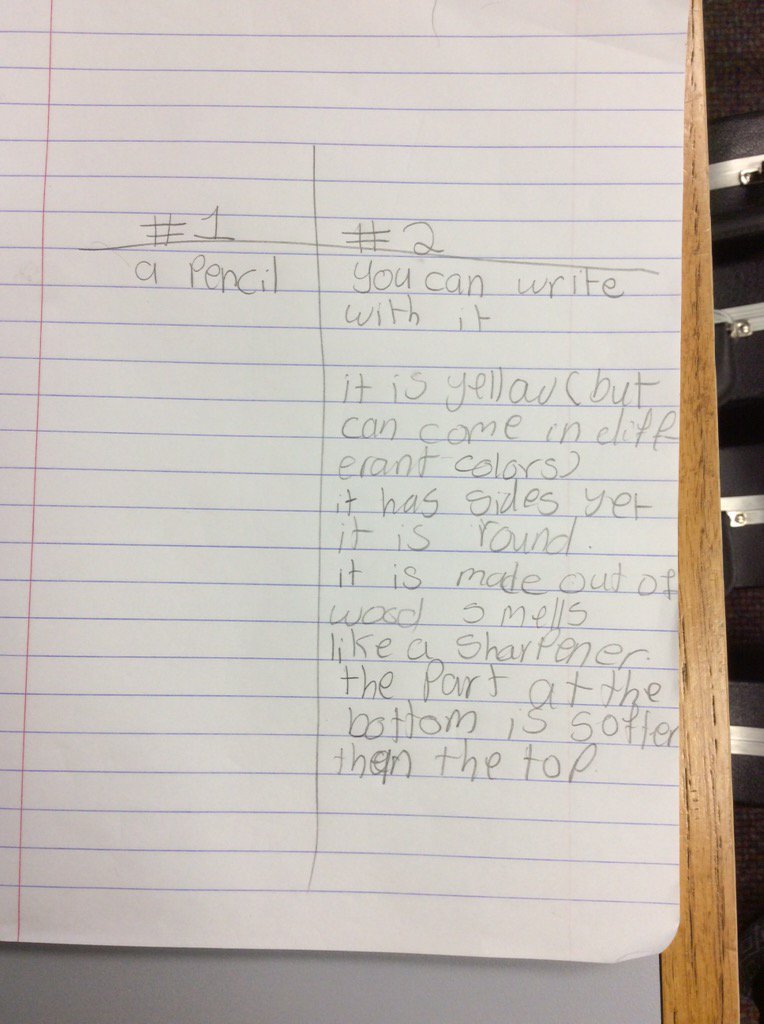 #1
#2
a Pencil
you can write
with it
it is yellow (but
can come in diff
erant colors)
it has sides yet
it is round.
it is made out of
wood smells
like a sharpener.
the Part at the
bottom is softer
then the top